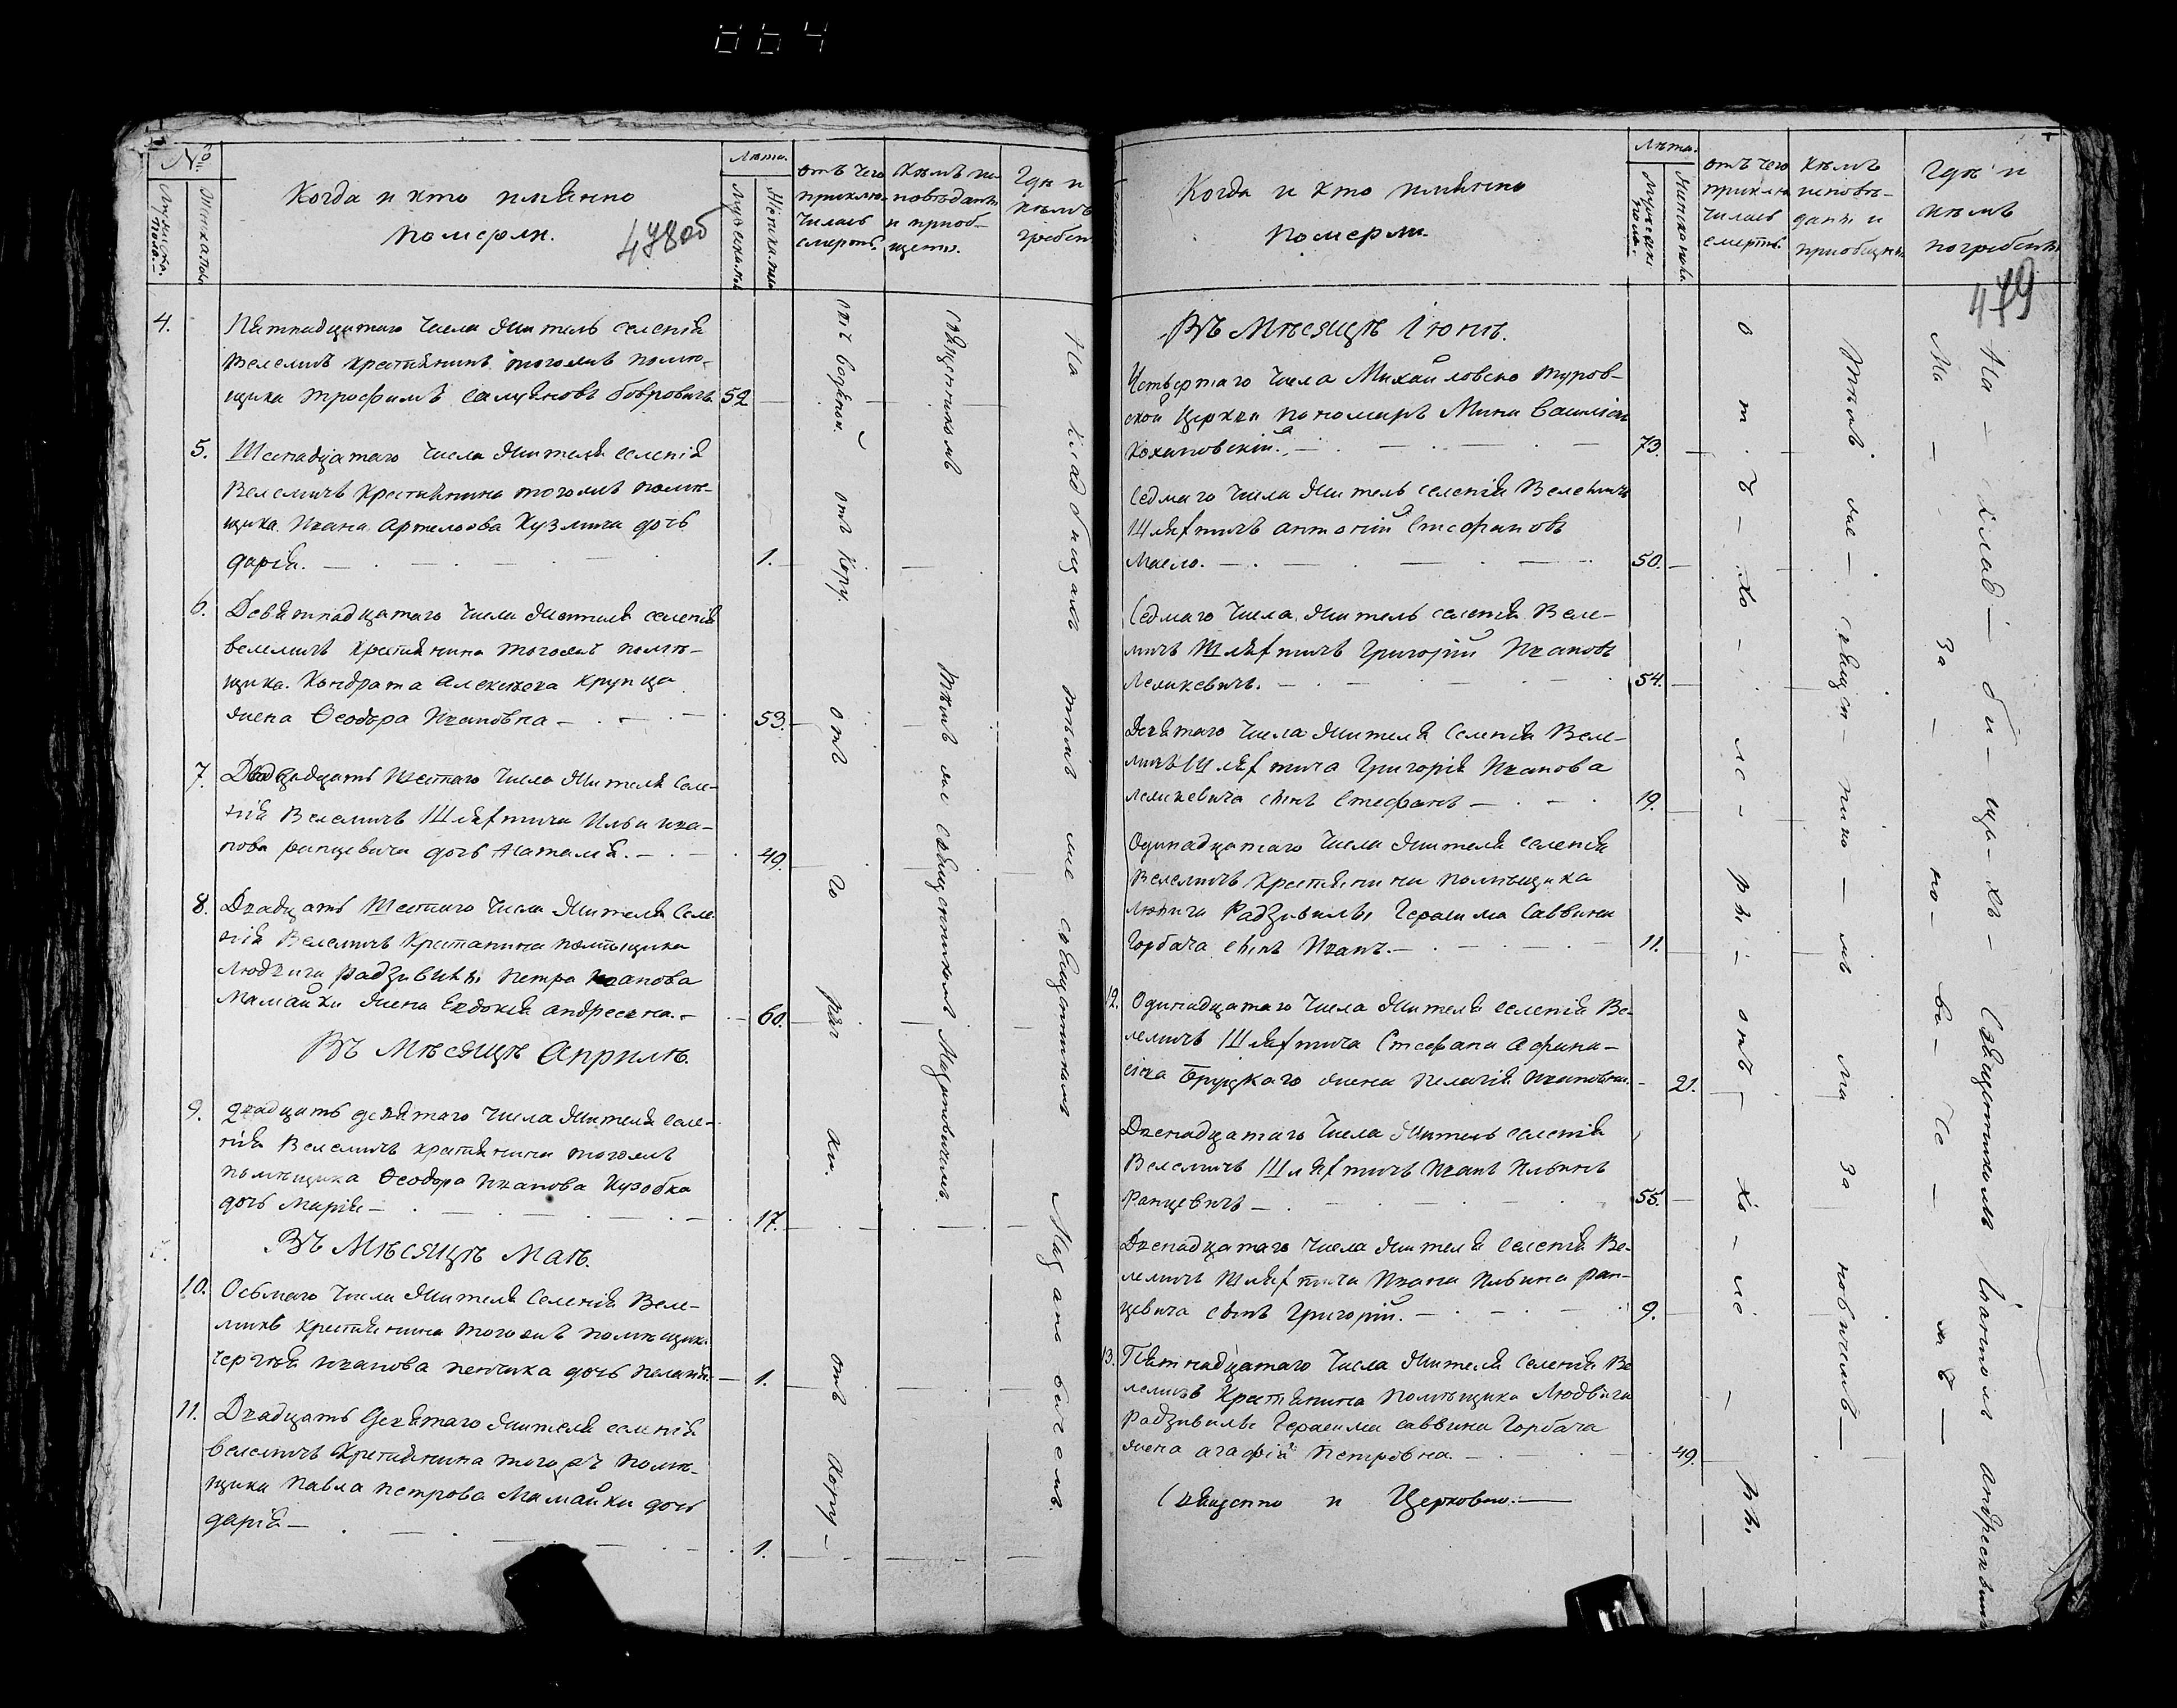 664
№
Мужеска пола.
Женска пола
Когда и кто имянно
померли.
478об
Лѣта.
Мужска пол
Женска пола
отъ чего
приклю-
чилась
смерть.
Кѣмъ ис
повѣданъ
и приоб-
щенъ.
Гдѣ и
кѣмъ
гребен
4.
Пятнадцатаго числа житель селенія
Велемичъ крестьянинъ тогожъ помѣ-
щика Трофимъ Бобровичъ 52
5. Шеснадцатаго числа жителя селенія
Велемичъ крестьянина тогожъ помѣ-
щика Ивана Артемьева Кузмича дочь
Дарія. 1.
6. Девятнадцатаго числа жителя селенія
Велемичъ крестьянина тогожъ помѣ-
щика Кондрата Алексѣева Крупица
жена Ѳеодора Ивановна 53.
7. Двадцать шестаго числа жителя селе-
нія Велемичъ Шляхтича Ильи Ива-
нова Ранцевича дочь Наталія. 49.
8. Двадцать Шестаго числа жителя Селе
нія Велемичъ Крестянина помѣщика
Людвига Радзивилы Петра Иванова
Мамайки жена Евдокія Андреевна. 60.
Въ Мѣсяцѣ Априлѣ.
9. Двадцать девятаго числа жителя селе-
нія Велемичъ крестянина тогожъ
помѣщика Ѳеодора Иванова
дочь Марія 17.
Въ Мѣсяцѣ Маѣ.
10. Осьмаго числа жителя Селенія Веле-
мичъ крестянина тогожъ помѣщика
Сергѣя Иванова Пенчика дочь Пелагія 1.
11. Двадцать Девятаго жителя селенія
Велемичъ Крестянина тогожъ помѣ-
щика Павла Петрова Мамайки дочь
Дарія 1.
отъ кору.
отъ го ряч ки.
отъ кору
Священникомъ
Тѣмъ же Священникомъ Мацкевичемъ.
На кладбищахъ тѣмъ же священникомъ
Когда и кто имянно
померли.
Лѣта.
Мужеска пола.
Женска пола.
отъ чего
приклю
чилась
смерть.
Кѣмъ
исповѣ-
данъ и
приобщенъ
Гдѣ и
кѣмъ
погребенъ
479
Въ Мѣсяцѣ Іюнѣ.
Четвертаго числа Михайловско Туров-
ской Церкви пономарь Мина
Кохановскій. 73.
Седмаго числа житель селенія Велемичъ
Шляхтичъ Антоній Стефановъ
Масло. 50.
Седмаго числа житель селенія Веле-
мичъ Шляхтичъ Григорій Ивановъ
Лемикевичъ. 54.
Девятаго числа жителя Селенія Веле-
мичъ Шляхтича Григорія Иванова
Лемикевича сынъ Стефанъ 19.
Одинадцатаго числа жителя селенія
Велемичъ крестянина помѣщика
Людвига Радзивилы Герасима Саввина
Горбача сынъ Иванъ. 11.
12. Одинадцатаго числа жителя селенія Ве-
лемичъ Шляхтича Стефана Афана-
сіева Бруцкаго жена Пелагія Ивановна. 21.
Двенадцатаго числа житель селенія
Велемичъ Шляхтичъ Иванъ Ильинъ
Ранцевичъ 55.
Двенадцатаго числа жителя Селенія Ве-
лемичъ Шляхтича Ивана Ильина Ран-
цевича сынъ Григорій. 9.
13. Пятнадцатаго числа жителя Селенія Ве
лемичъ Крестянина помѣщика Людвига
Радзивилы Герасима Саввина Горбача
жена Агафія Петровна. 49.
Священно и Церковно.
отъ хо ле ры отъ хо ле ры.
Тѣмъ же священ никомъ Ма за новичемъ
На кладбищахъ Священникомъ Іоанномъ Андреевымъ
Ма за но ви че мъ